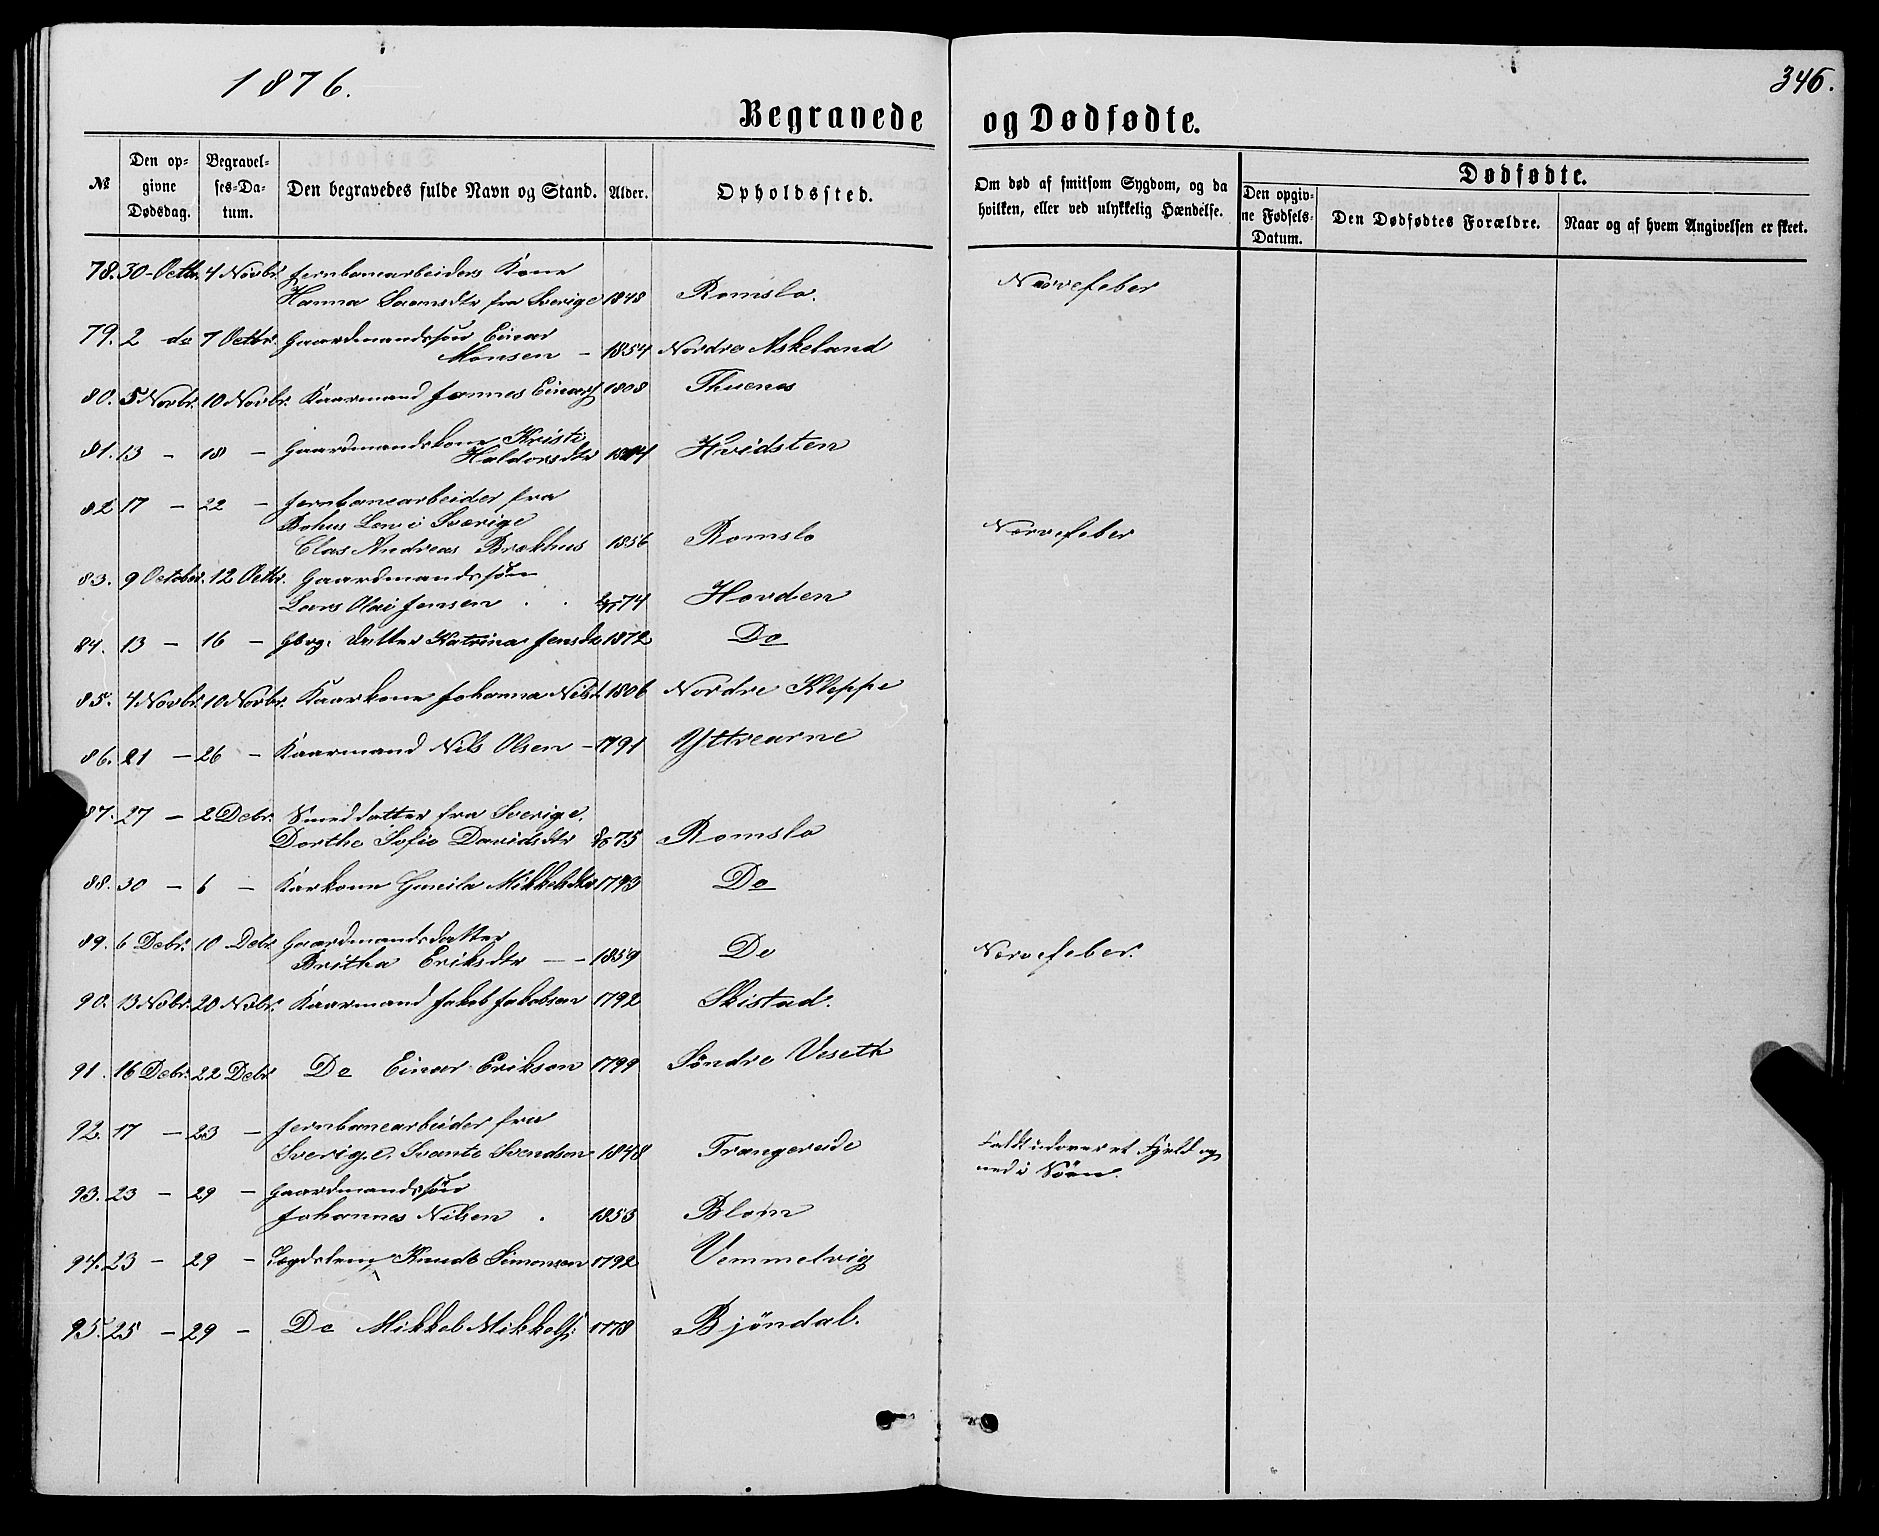 1876.
346.
Begravede og Dødfødte.
№
Den opgivne Dødsdag.
Begravelses-Datum.
Den begravedes fulde Navn og Stand.
Alder.
Opholdssted.
Om død af smitsom Sygdom, og da hvilken, eller ved ulykkelig Hændelse.
Dødfødte.
Den opgivne Fødsels-Datum.
Den Dødfødtes Forældre.
Naar og af hvem Angivelsen er skeet.
78. 30 Octbr. 4 Novbr. Jernbanearbeiders Kone
Hanna Svensdtr fra Sverige 1848 Romslo. Nervefeber
79. 2 do 7 Octbr. Gaardmandssøn Einar
Monsen - 1854 Nordre Askeland
80. 5 Novbr. 10 Novbr. Kaarmand Joannes Einars 1808 Thuenes
81. 13 - 18 - Gaardmandskone Kristi
Haldorsdtr Hvidsten
82 17 - 22 - Jernbanearbeider fra
Bohus Len i Sverige
Clas Andreas Brækhus 1856 Romslo Nervefeber
83. 9 October. 12 Octbr. Gaardmandssøn
Lars Olai Jensen . . 74 Hovden
84. 13 - 16 - Gbrg. Datter Katrina Jensdtr 1872 Do
85. 4 Novbr. 10 Novbr. Kaarkone Johanna Nilsd. 1806 Nordre Kleppe
86. 21 - 26 - Kaarmand Nils Olsen - 1791 Yttrearne
87. 27 - 2 Debr. Smeddatter fra Sverige.
Dorthe Sofie Davidsdtr 75 Romslo
88. 30 - 6 - Karkone Gunila Mikkelsdtr 1793 Do
89. 6 Debr. 10 Debr. Gaardmandsdatter
Britha Eriksdtr - - 1859 Do Nervefeber.
90. 13 Nobr. 20 Nobr. Kaarmand Jakob Jakobsen 1792 Skistad.
91. 16 Debr. 22 Debr Do Einar Eriksen 1799 Søndre Veseth
92. 17 - 23 - Jernbanearbeider fra
Sverige. Svante Svendsen 1848 Trangereide Faldt udover et Fjeld og
ned i Søen.
93. 23 - 29 - Gaardmandssøn
Johannes Nilsen . 1853 Blom
94. 23 - 29 - Lægdslem Knudt Simonsen 1792 Vemmelvig
95. 25 - 29 - Do Mikkel Mikkels. 1778 Bjöndal.